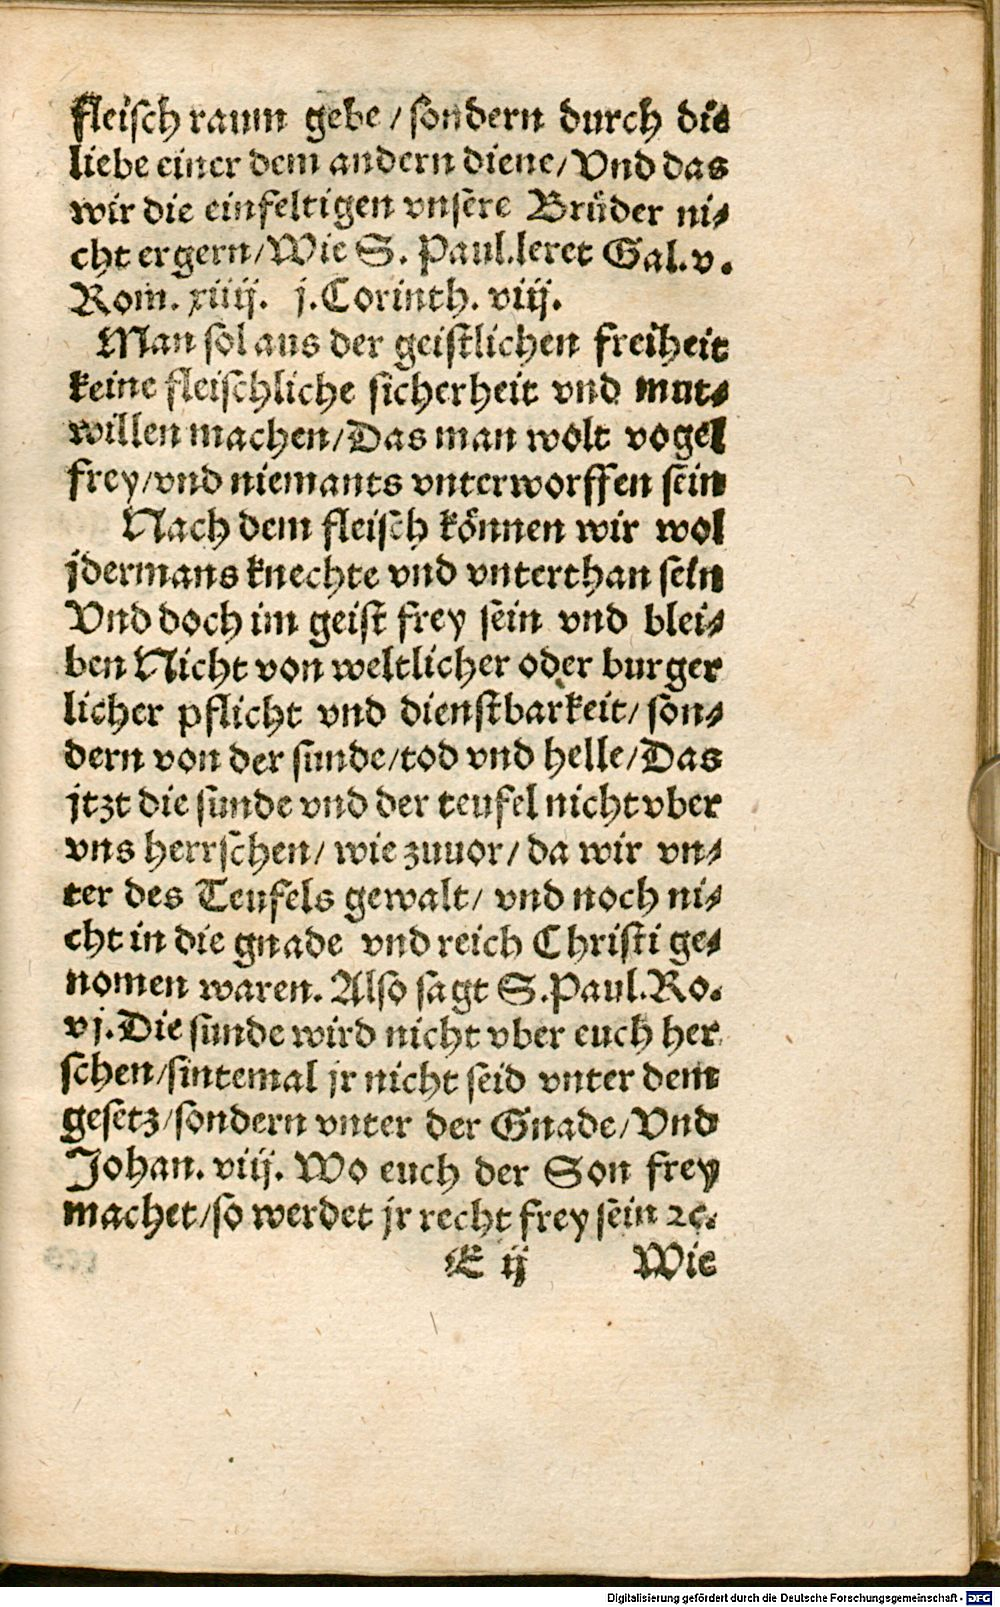 fleisch raum gebe / sondern durch die
liebe einer dem andern diene/ Vnd das
wir die einfeltigen vnsere Brüder ni⸗
cht ergern/Wie S. Paul.leret Gal.v.
Rom. xiiij. j.Corinth. viij.
Man sol aus der geistlichen freiheit
keine fleischliche sicherheit vnd mut⸗
willen machen/Das man wolt vogel
frey/vnd niemants vnterworffen sein
Nach dem fleisch können wir wol
jdermans knechte vnd vnterthan sein
Vnd doch im geist frey sein vnd blei⸗
ben Nicht von weltlicher oder burger
licher pflicht vnd dienstbarkeit/ son⸗
dern von der sunde/tod vnd helle/Das
jtzt die sunde vnd der teufel nicht vber
vns herrschen/ wie zuuor/ da wir vn⸗
ter des Teufels gewalt/ vnd noch ni⸗
cht in die gnade vnd reich Christi ge⸗
nomen waren. Also sagt S.Paul.Ro.
vj.Die sunde wird nicht vber euch her
schen/sintemal jr nicht seid vnter dem
gesetz/sondern vnter der Gnade/Vnd
Johan. viij. Wo euch der Son frey
machet/so werdet jr recht frey sein ꝛc.
E ij Wie
Digitalisierung gefördert durch die Deutsche Forschungsgemeinschaft - DFG